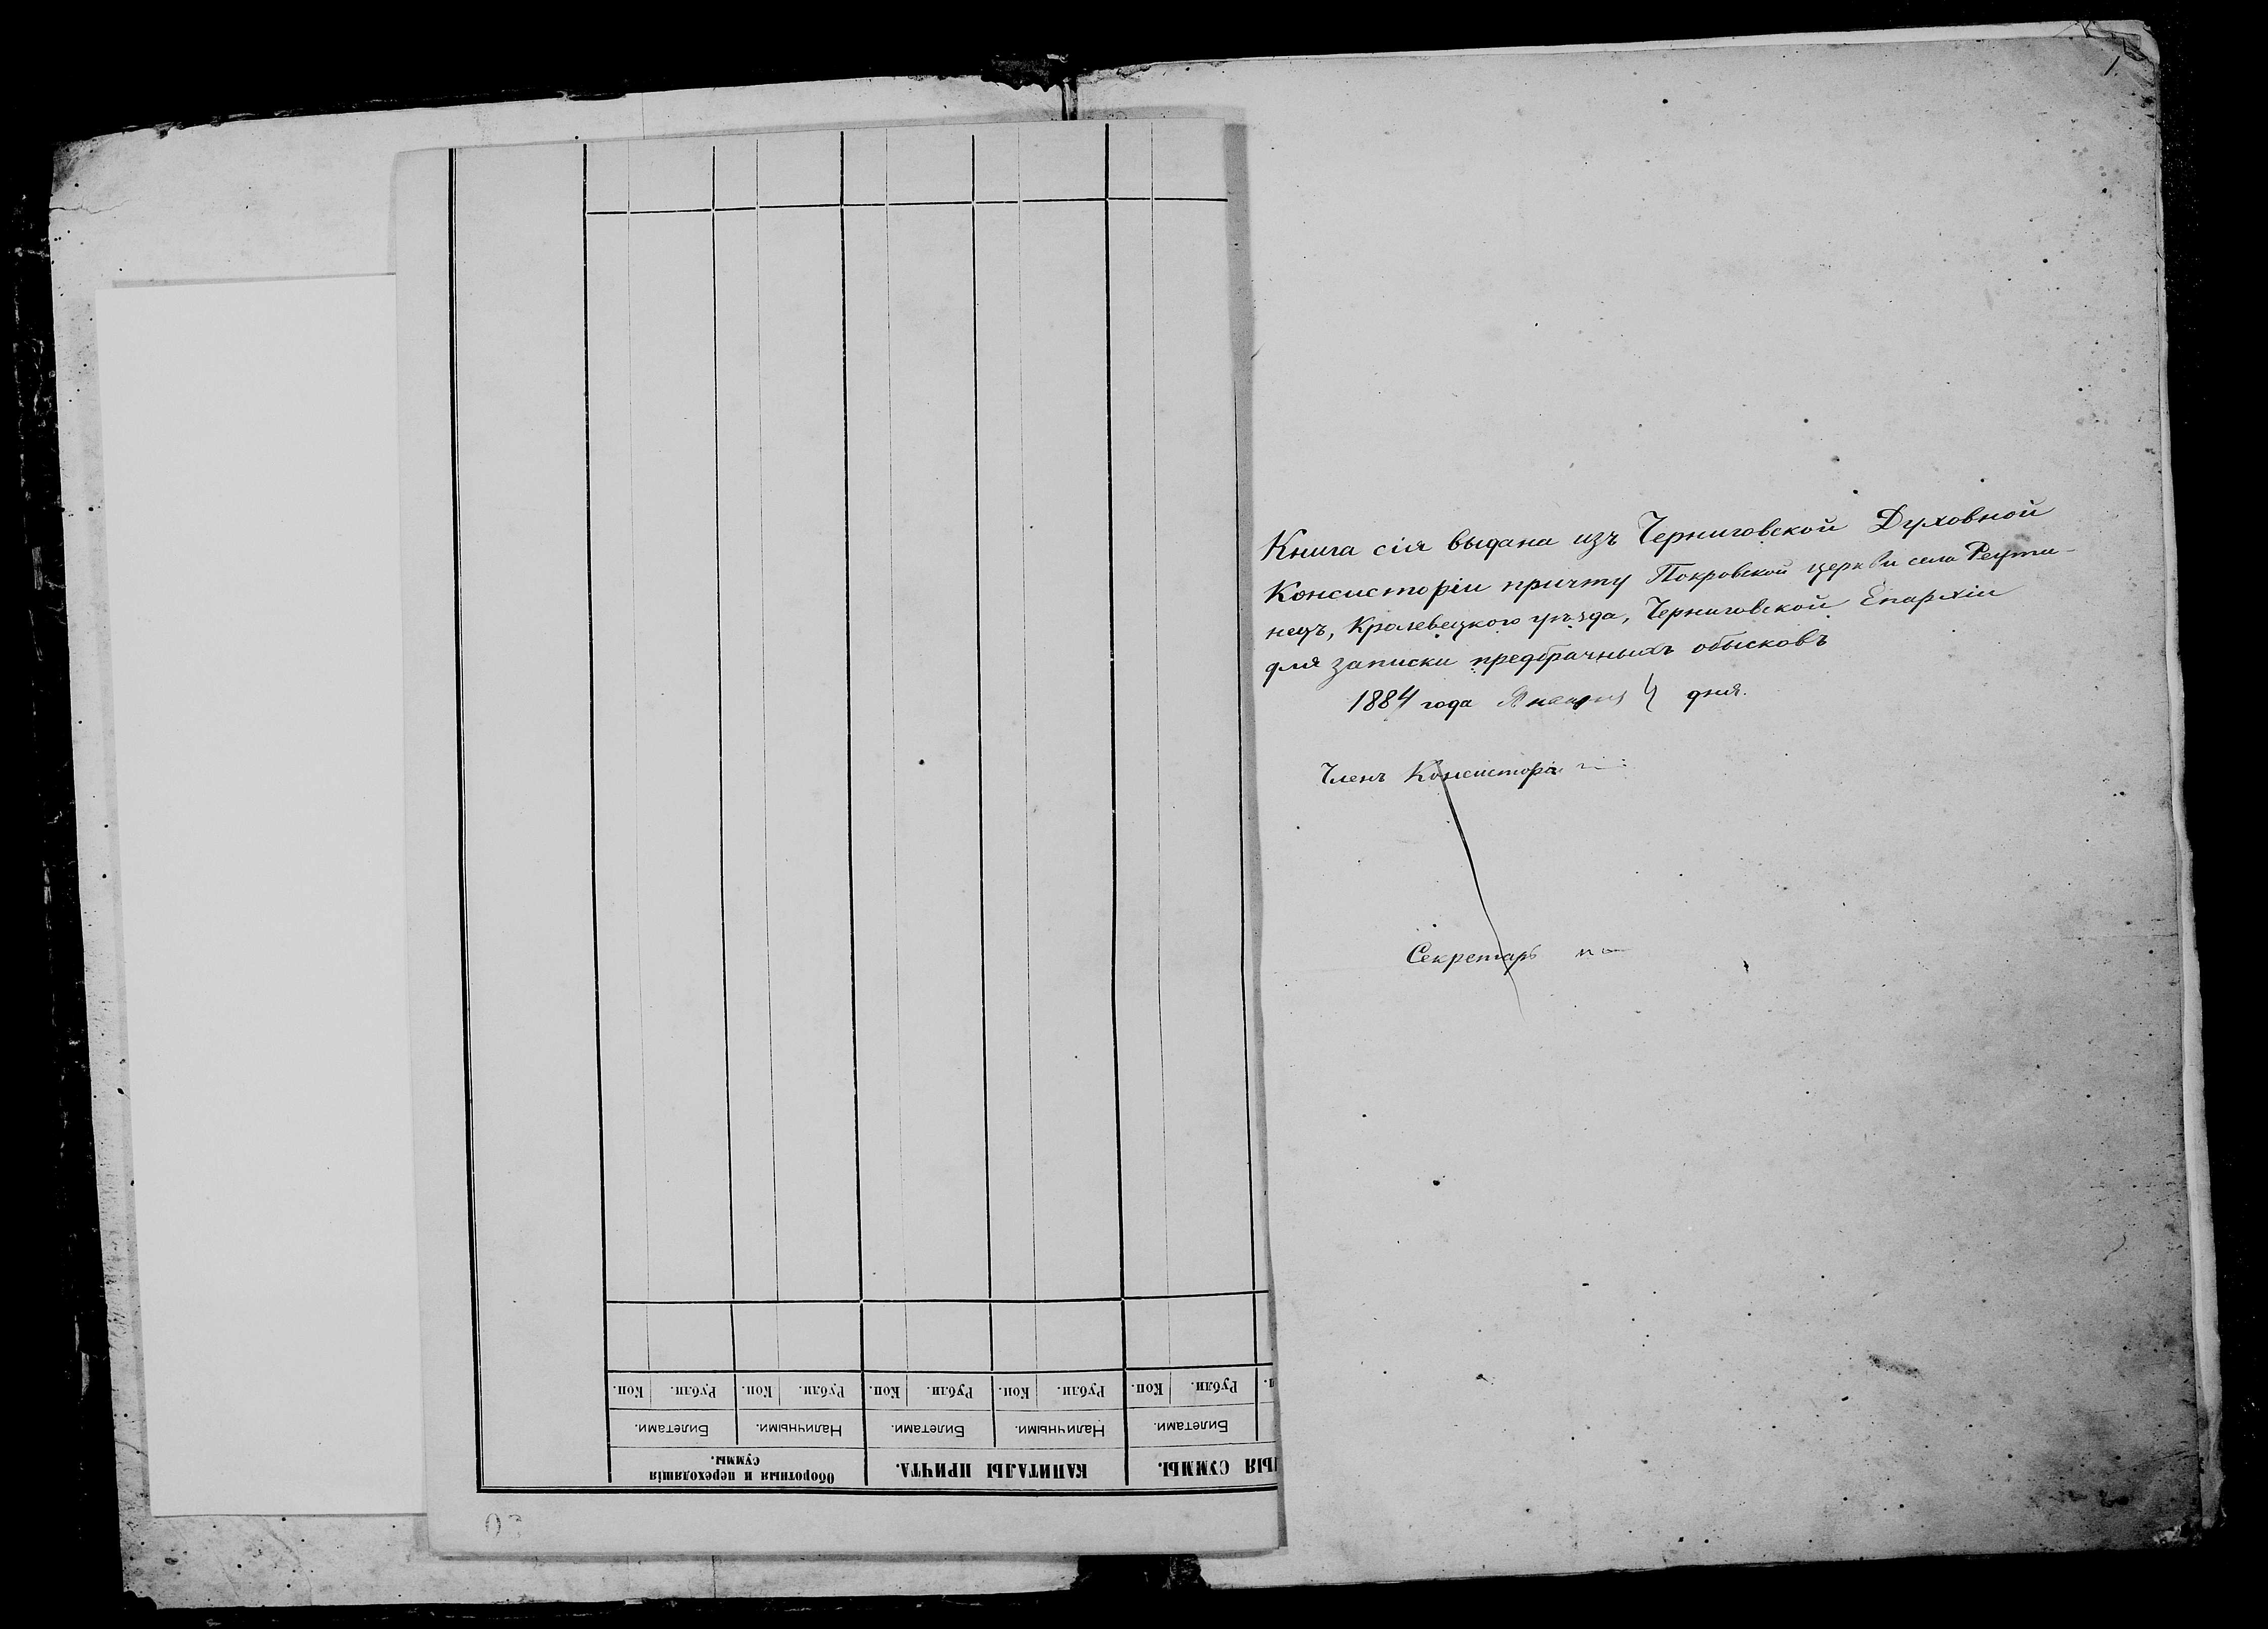 1
Книга сія выдана изъ Черниговской Духовной
Консисторіи причту Покровской церкви села Реути-
нецъ, Кролевецкого уѣзда, Черниговской Епархіи
для записки предбрачныхъ обысковъ
1884 года Января 4 дня.
Членъ Консисторіи
Секретарь
Оборотныя и переходящія суммы.
КАПИТАЛЫ ПРИЧТА.
НЫЯ СУММЫ.
Билетами. Наличными. Билетами. Наличными. Билетами.
Коп. Рубли. Коп. Рубли. Коп. Рубли. Коп. Рубли. Коп. Рубли.